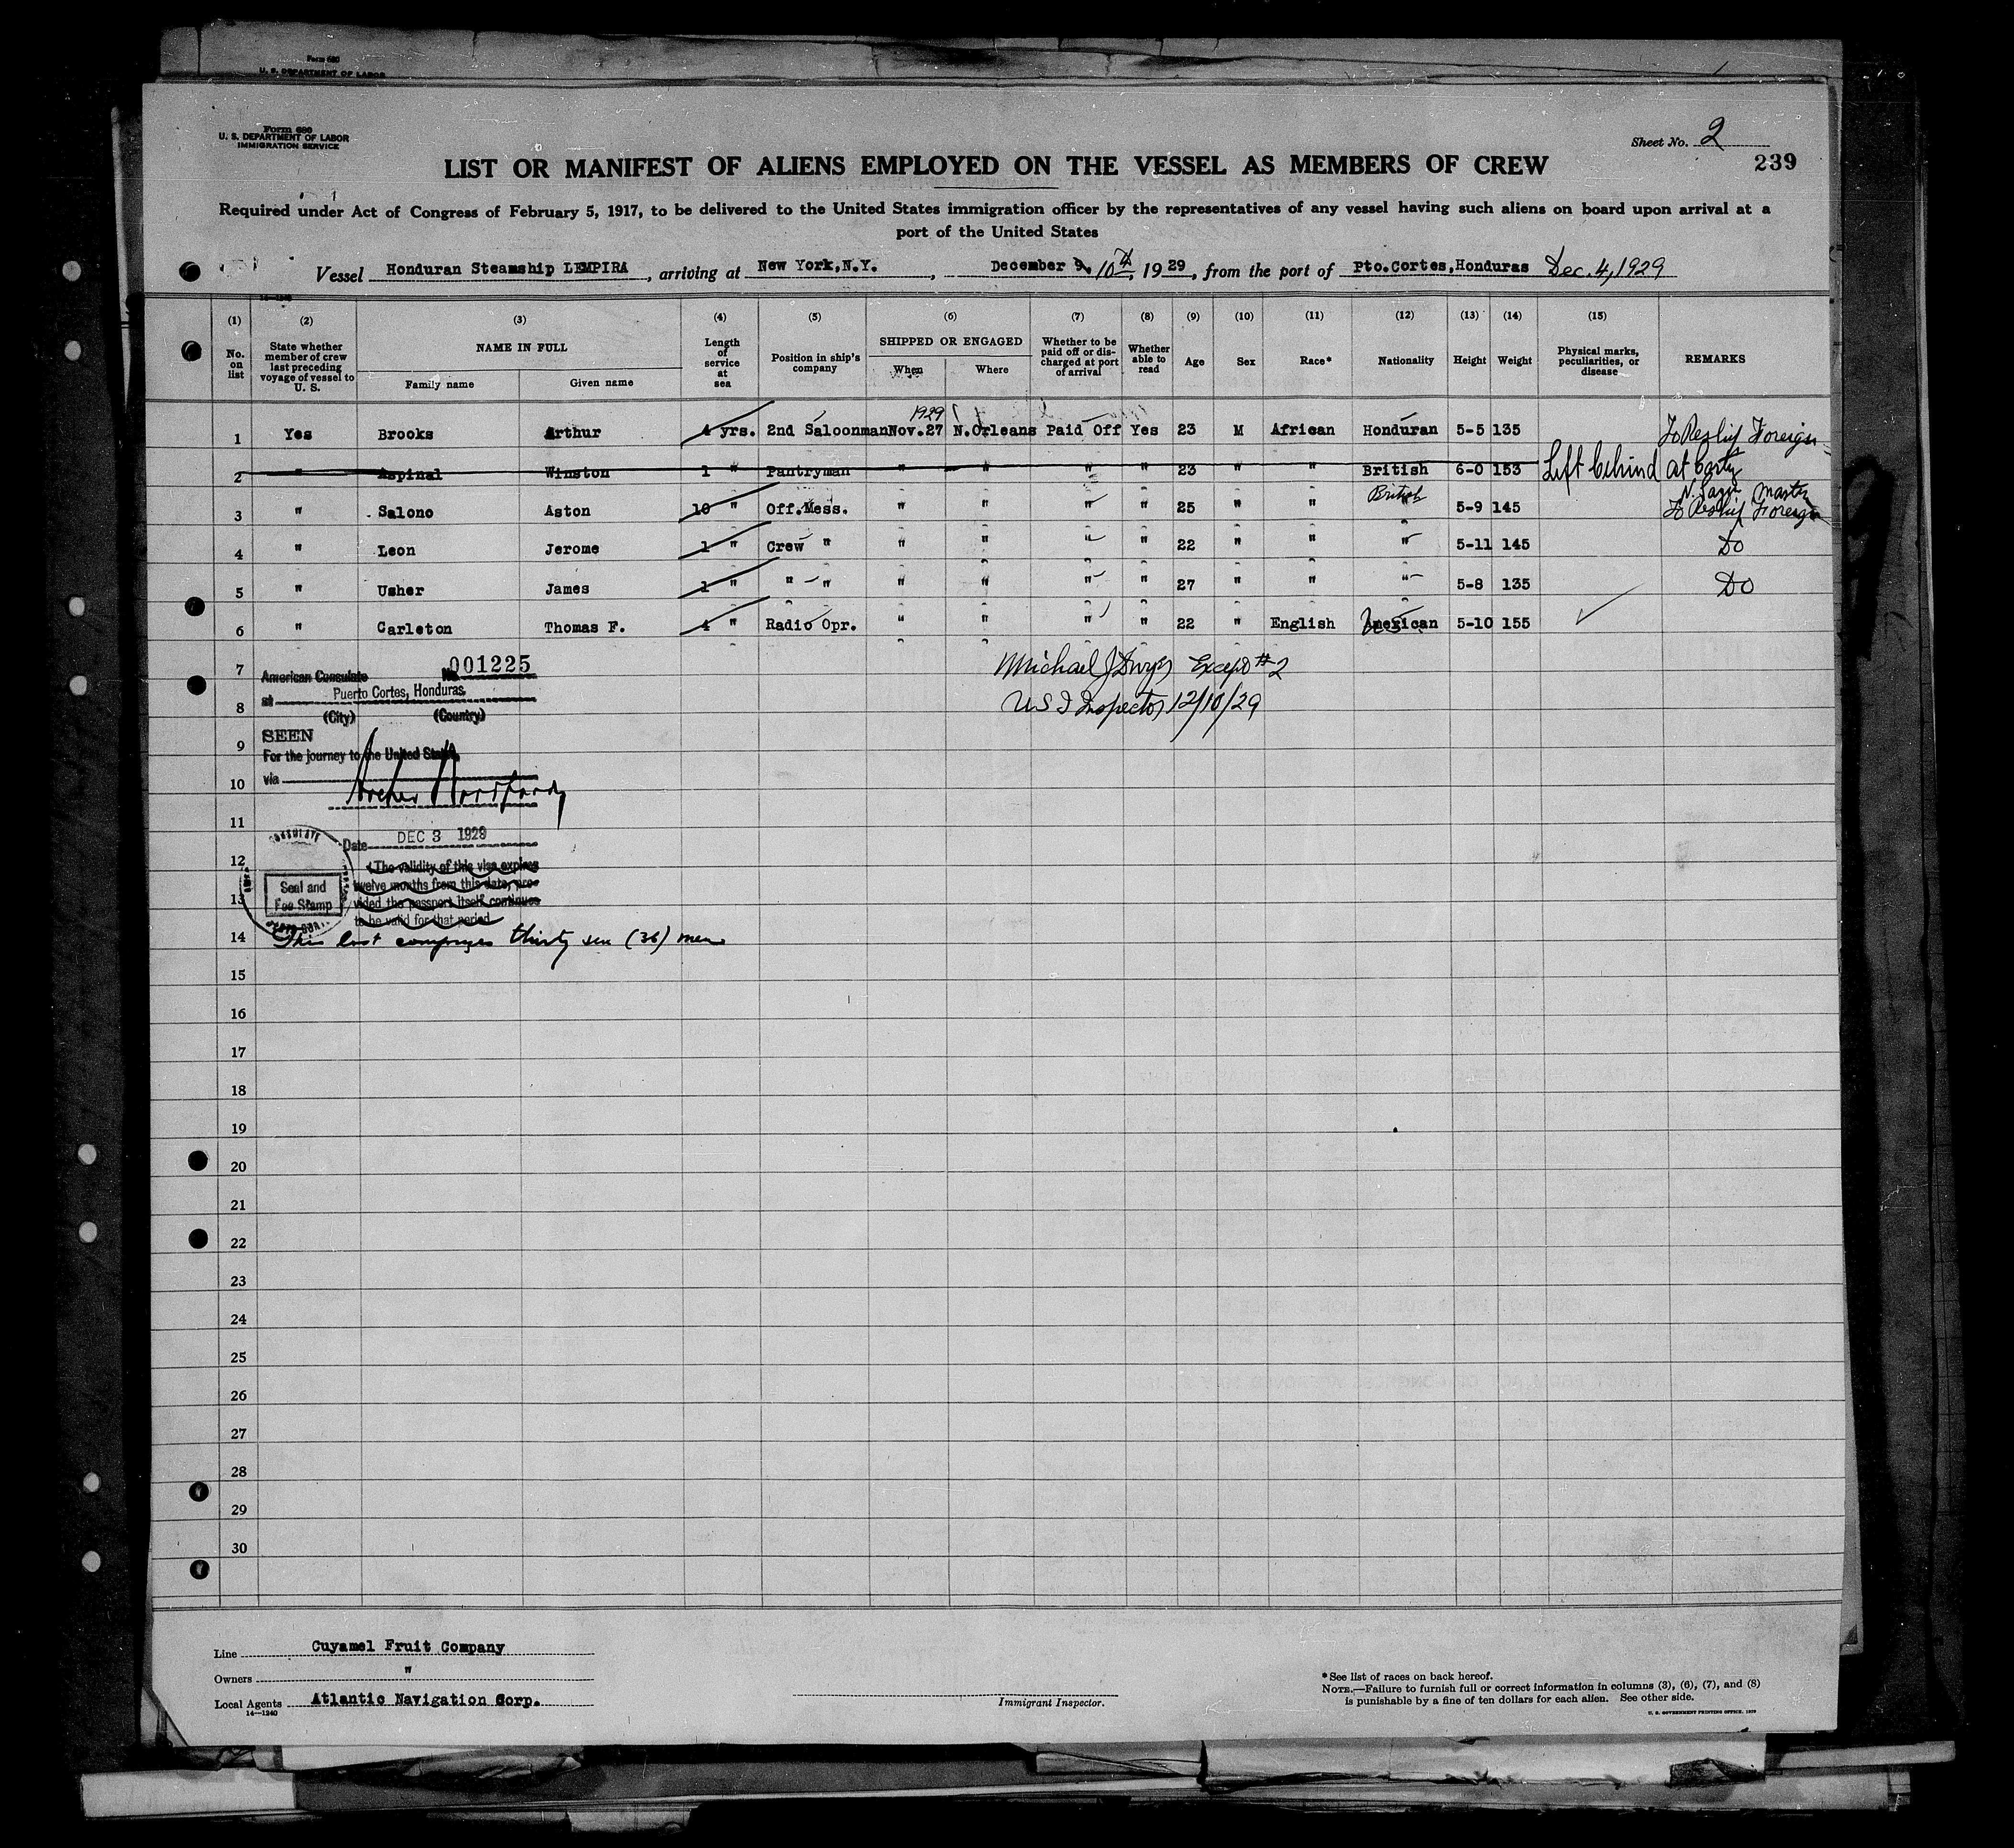 Form 680
U. S. DEPARTMENT OF LABOR
Form 680
U. S. DEPARTMENT OF LABOR
IMMIGRATION SERVICE
Sheet No. 2
239
LIST OR MANIFEST OF ALIENS EMPLOYED ON THE VESSEL AS MEMBERS OF CREW
Required under Act of Congress of February 5, 1917, to be delivered to the United States immigration officer by the representatives of any vessel having such aliens on board upon arrival at a
port of the United States
Vessel Honduran Steamship LEMPIRA, arriving at New York,N.Y., December 9, 10th, 1929, from the port of Pto.Cortes,Honduras Dec. 4, 1929
14-1240
(1) (2) (3) (4) (5) (6) (7) (8) (9) (10) (11) (12) (13) (14) (15)
No. on list
State whether member of crew last preceding voyage of vessel to U. S.
NAME IN FULL
Family name Given name
Length of service at sea
Position in ship's company
SHIPPED OR ENGAGED
When Where
Whether to be paid off or discharged at port of arrival
Whether able to read
Age Sex Race* Nationality Height Weight
Physical marks, peculiarities, or disease
REMARKS
1929
1 Yes Brooks Arthur 4 yrs. 2nd Saloonman Nov.27 N.Orleans Paid Off Yes 23 M African Honduran 5-5 135 To Reship Foreign
2 " Aspinal Winston 1 " Pantryman " " " " 23 " " British 6-0 153 Left behind at Cortez
British
Master
3 " Salono Aston 10 " Off.Mess. " " " " 25 " " " 5-9 145 To Reship Foreign
4 " Leon Jerome 1 " Crew " " " " " 22 " " " 5-11 145 Do
5 " Usher James 1 " " " " " " " 27 " " " 5-8 135 Do
6 " Carleton Thomas F. 4 " Radio Opr. " " " " 22 " English American U.S. 5-10 155
7
8
9
10
11
12
13
14
15
16
17
18
19
20
21
22
23
24
25
26
27
28
29
30
Michael J Dwyer Except #2
U S I Inspector 12/10/29
American Consulate No. 001225
at Puerto Cortes, Honduras.
(City) (Country)
SEEN
For the journey to the United States,
via
Date DEC 3 1929
(The validity of this visa expires
twelve months from this date, pro-
vided the passport itself continues
to be valid for that period
CONSULATE
Seal and
Fee Stamp
This list comprises thirty six (36) men
Line Cuyamel Fruit Company
Owners "
Local Agents Atlantic Navigation Corp.
14—1240
Immigrant Inspector.
* See list of races on back hereof.
NOTE.—Failure to furnish full or correct information in columns (3), (6), (7), and (8)
is punishable by a fine of ten dollars for each alien. See other side.
U. S. GOVERNMENT PRINTING OFFICE. 1929